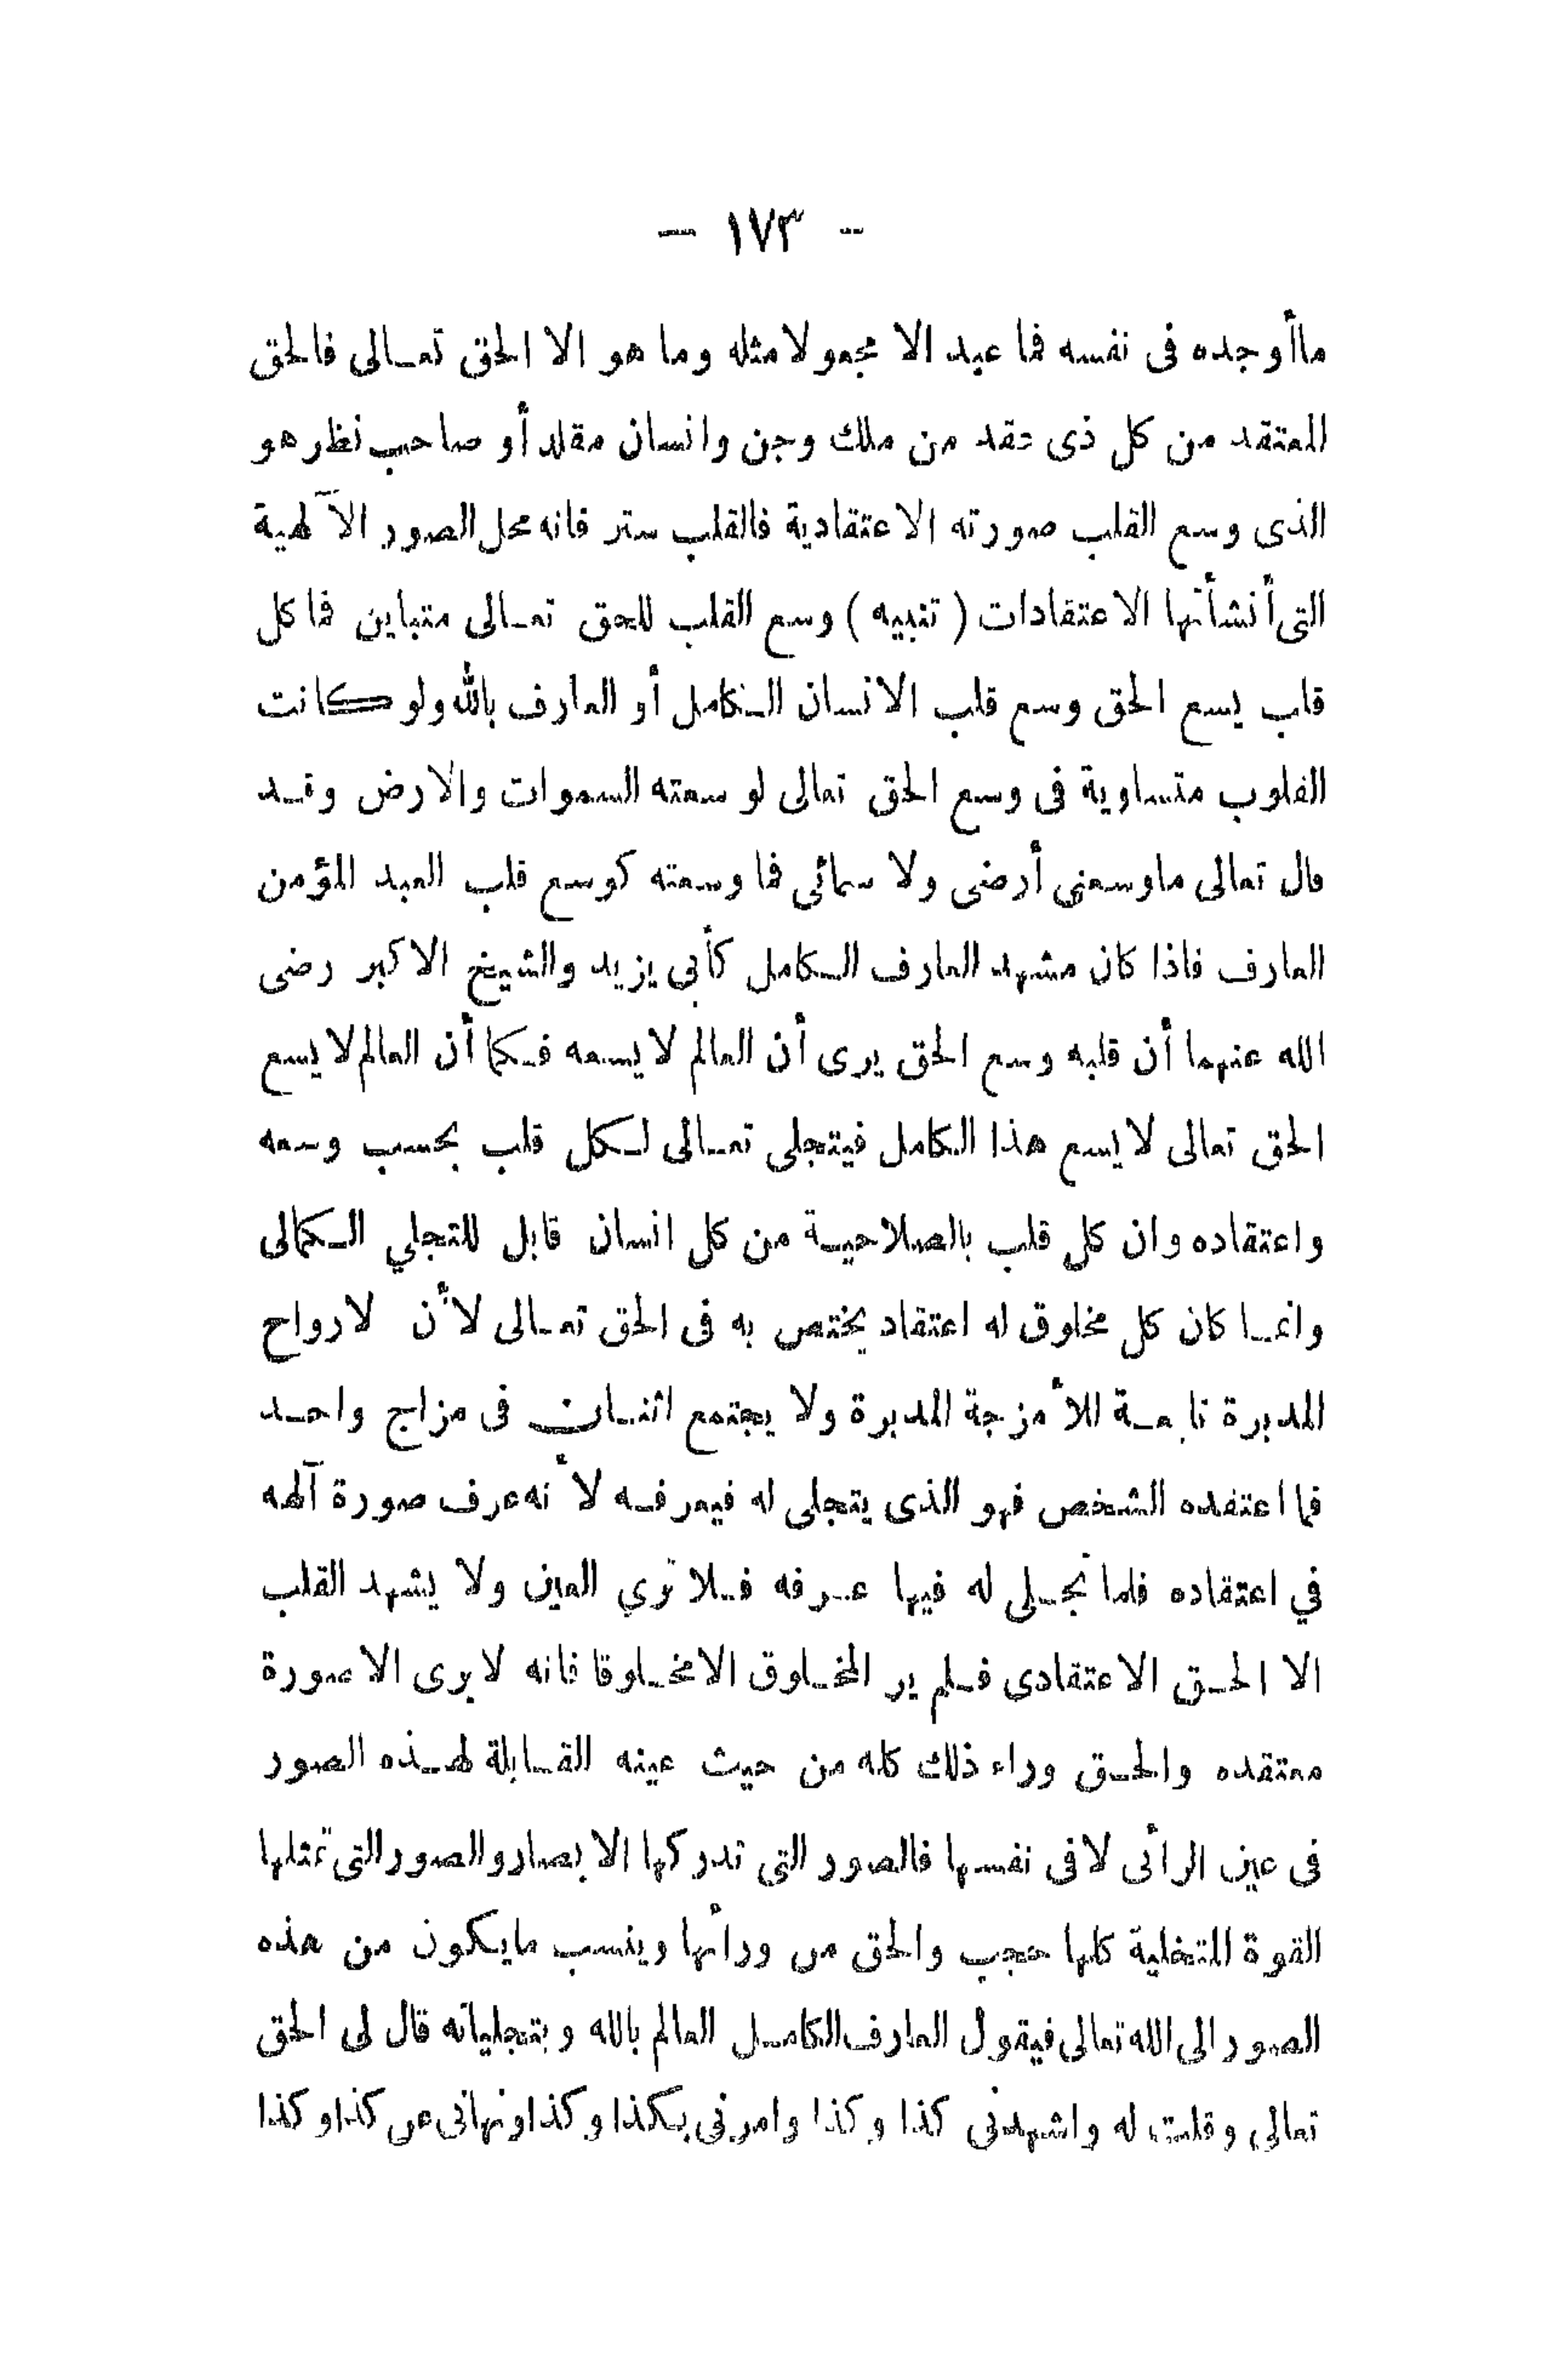 - ١٧٣ -
ماأوجده فى نفسه فما عبد الا مجعولا مثله وما هو الا الحق تعالى فالحق
المعتقد من كل ذى عقد من ملك وجن وانسان مقلد أو صاحب نظر هو
الذى وسع القلب صورته الاعتقادية فالقلب ستر فانه محل الصور الآلهية
التى أنشأتها الاعتقادات ( تنبيه ) وسع القلب للحق تعالى متباين فما كل
قلب يسع الحق وسع قلب الانسان الكامل أو العارف بالله ولو كانت
القلوب متساوية فى وسع الحق تعالى لو سعته السموات والارض وقد
قال تعالى ماوسعنى أرضى ولا سمائى فما وسعته كوسع قلب العبد المؤمن
العارف فاذا كان مشهد العارف الكامل كأبى يزيد والشيخ الاكبر رضى
الله عنهما أن قلبه وسع الحق يرى أن العالم لايسعه فكما أن العالم لايسع
الحق تعالى لايسع هذا الكامل فيتجلى تعالى لكل قلب بحسب وسعه
واعتقاده وان كل قلب بالصلاحية من كل انسان قابل للتجلي الكمالى
وانما كان كل مخلوق له اعتقاد يختص به فى الحق تعالى لأن لارواح
المدبرة تابعة للأمزجة المدبرة ولا يجتمع اثنان فى مزاج واحد
فما اعتقده الشخص فهو الذى يتجلى له فيعرفه لأنه عرف صورة آلهه
في اعتقاده فلما تجلى له فيها عرفه فلا تري العين ولا يشهد القلب
الا الحق الاعتقادى فلم ير المخلوق الا مخلوقا فانه لايرى الا صورة
معتقده والحق وراء ذلك كله من حيث عينه القابلة لهذه الصور
فى عين الرأنى لافى نفسها فالصور التى تدركها الابصار والصور التى تمثلها
القوة المتخلية كلها حجب والحق من ورائها وينسب مايكون من هذه
الصور الى الله تعالى فيقول العارف الكامل العالم بالله وبتجلياته قال لى الحق
تعالى وقلت له واشهدنى كذا وكذا وامرنى بكذا وكذا ونهانى عن كذا وكذا